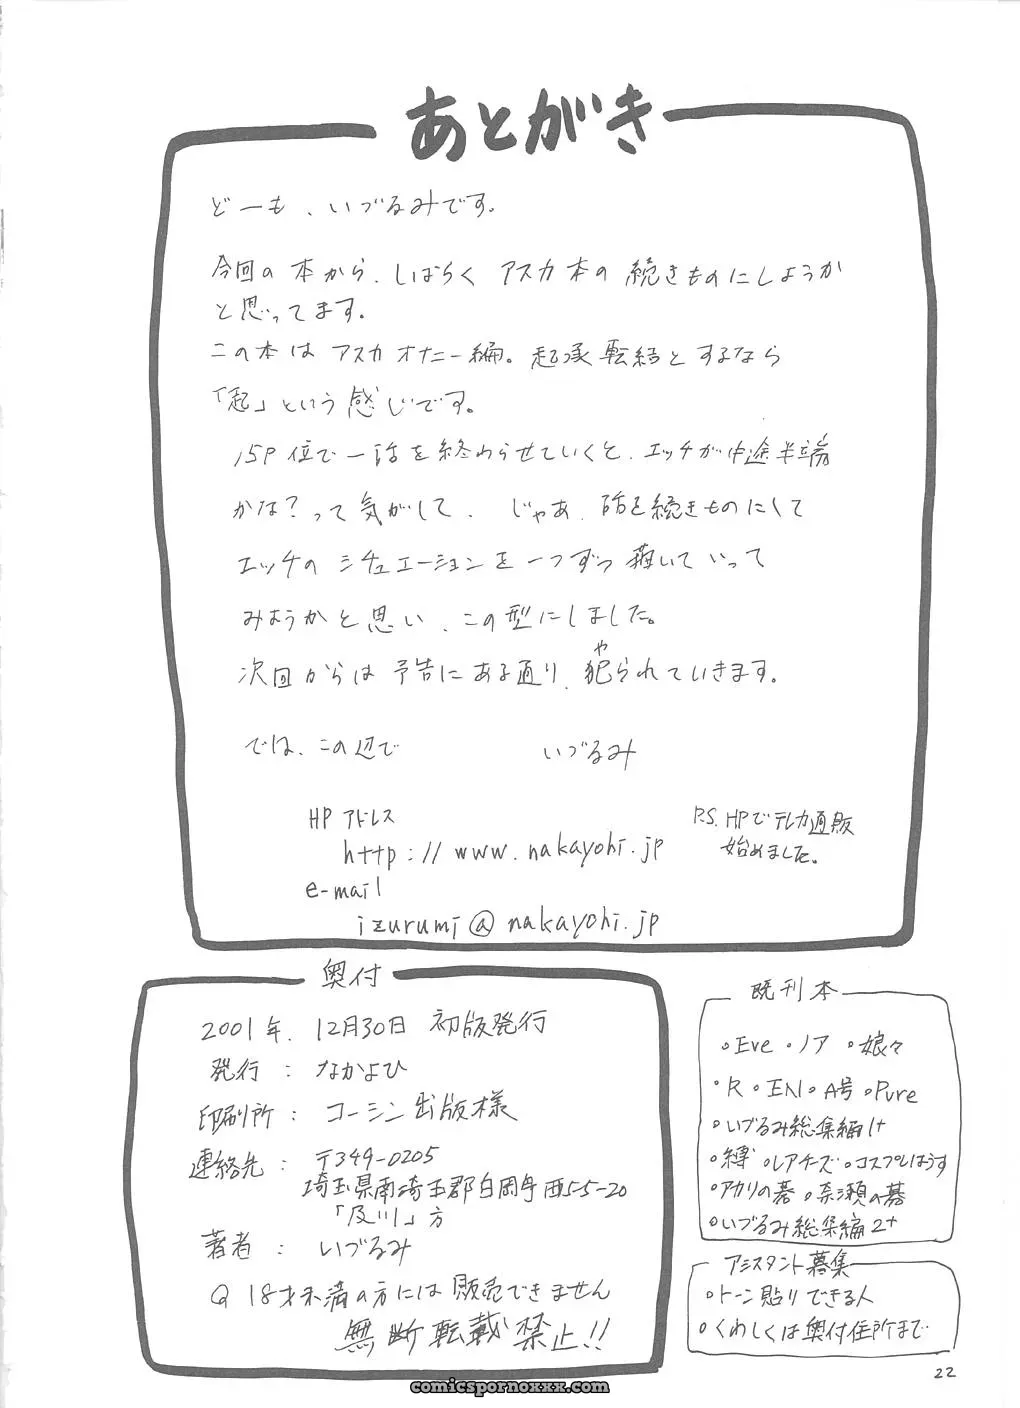 あとがき
どーも、いづるみです。
今回の本から、しばらくアスカ本の続きものにしようか
と思ってます。
この本はアスカオナニー編。起承転結とするなら
「起」という感じです。
15P位で一話を終わらせていくと、エッチが中途半端
かな？って気がして、じゃあ、話を続きものにして
エッチのシチュエーションを一つずつ描いていって
みようかと思い、この型にしました。
次回からは予告にある通り、犯（や）られていきます。
では、この辺で いづるみ
HPアドレス
http://www.nakayohi.jp
e-mail
izurumi@nakayohi.jp
P.S. HPでテレカ通販
始めました。
奥付
2001年、12月30日 初版発行
発行：なかよひ
印刷所：コーシン出版様
連絡先：〒349-0205
埼玉県南埼玉郡白岡町西5-5-20
「及川」方
著者：いづるみ
18才未満の方には販売できません
無断転載禁止!!
既刊本
・Eve ・ノア ・娘々
・R ・EN ・A号 ・Pure
・いづるみ総集編1+
・縛 ・レアチーズ ・コスプレはうす
・アカリの碁 ・奈瀬の碁
・いづるみ総集編2+
アシスタント募集
・トーン貼りできる人
・くわしくは奥付住所まで
22
comicspornoxxx.com